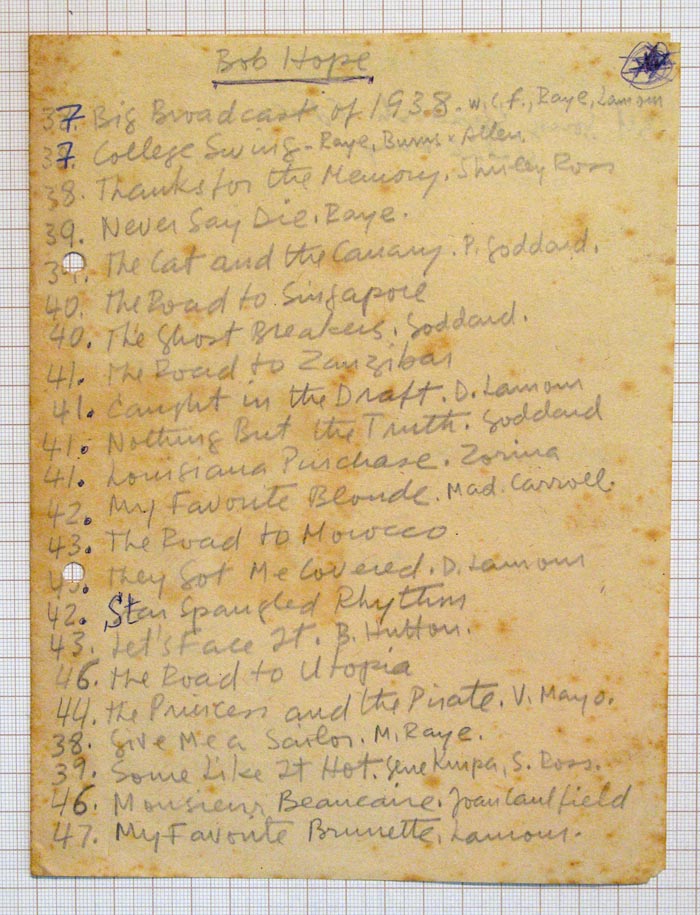 Bob Hope
37. Big Broadcast of 1938. W.C.F., Raye, Lamour
37. College Swing - Raye, Burns & Allen.
38. Thanks for the Memory. Shirley Ross
39. Never Say Die. Raye.
39. The Cat and the Canary. P. Goddard.
40. The Road to Singapore
40. The Ghost Breakers. Goddard.
41. The Road to Zanzibar
41. Caught in the Draft. D. Lamour
41. Nothing But the Truth. Goddard
41. Louisiana Purchase. Zorina
42. My Favorite Blonde. Mad. Carroll.
43. The Road to Morocco
They Got Me Covered. D. Lamour
42. Star Spangled Rhythm
43. Let's Face It. B. Hutton.
46. The Road to Utopia
44. The Princess and the Pirate. V. Mayo.
38. Give Me a Sailor. M. Raye.
39. Some Like It Hot. Gene Krupa, S. Ross.
46. Monsieur Beaucaire. Joan Caulfield
47. My Favorite Brunette. Lamour.